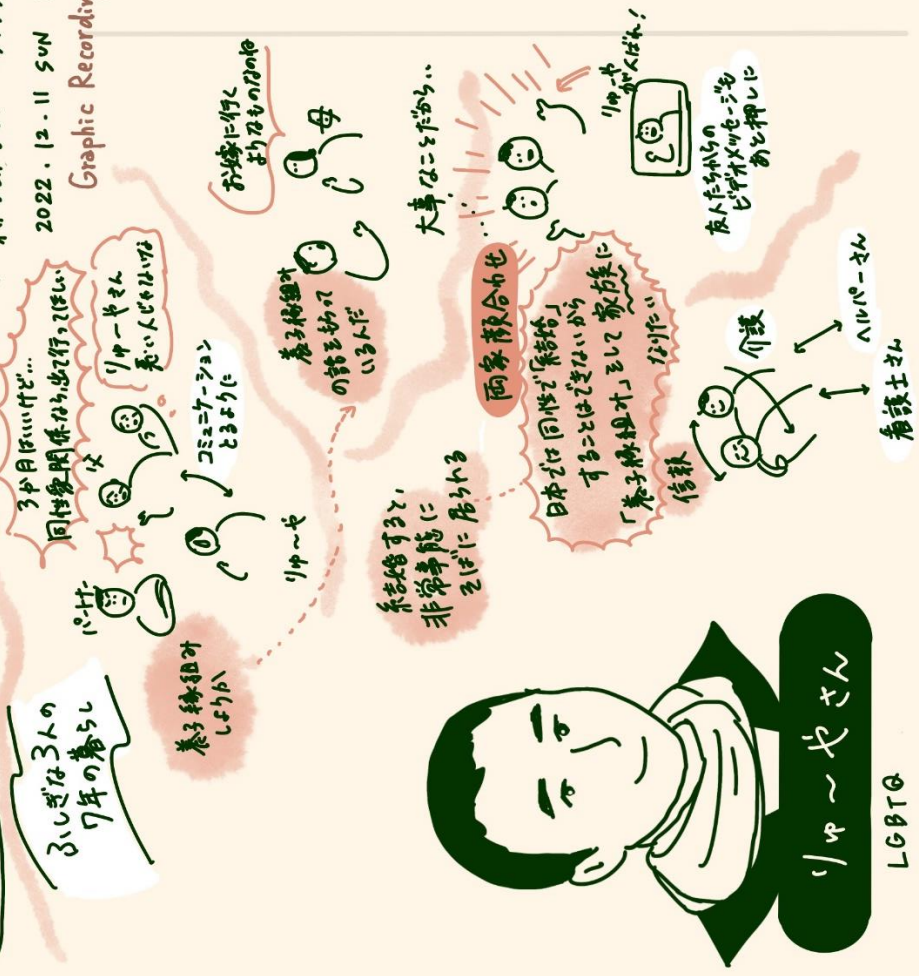 2022.12.11 SUN
Graphic Recordin
ふしぎな3人の
7年の暮らし
3か月はいいけど...
同性愛関係なら出て行ってほしい
りゅーやさん
悪い人じゃないな
パートナー
父
コミュニケーション
とるように
りゅ〜や
養子縁組み
しようか
養子縁組み
の話をもって
いるんだ
お嫁に行く
ようなものなのね
母
結婚すると、
非常事態に
そばに居られる
両家顔合わせ
大事なことだから..
日本では同性で「結婚」
することはできないから
「養子縁組み」をして家族に
なりたい
りゅ〜や
がんばれ!
友人たちからの
ビデオメッセージも
あと押しに
信頼
介護
ヘルパーさん
看護士さん
りゅ〜やさん
LGBTQ